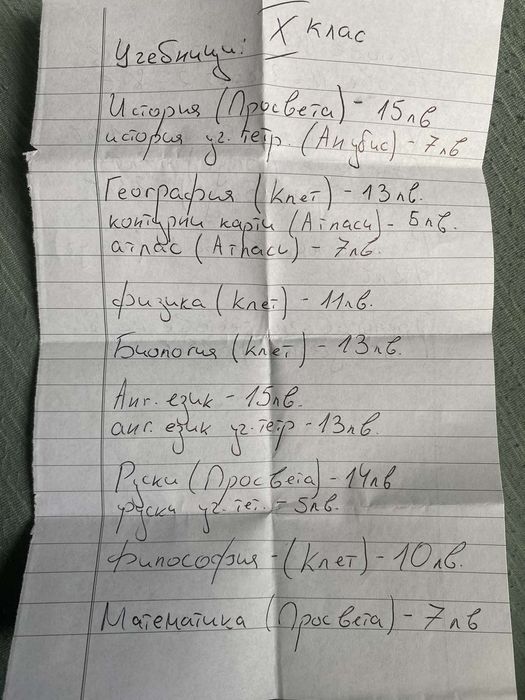 Учебници: X клас
История (Просвета) - 15лв
история уч. тетр. (Анубис) - 7лв
География (Клет) - 13лв.
контурни карти (Атласи) - 5лв.
атлас (Атласи) - 7лв.
физика (Клет) - 11лв.
Биология (Клет) - 13лв.
Анг. език - 15лв.
анг. език уч. тетр - 13лв.
Руски (Просвета) - 14лв
руски уч. тет. - 5лв.
Философия - (Клет) - 10лв.
Математика (Просвета) - 7лв